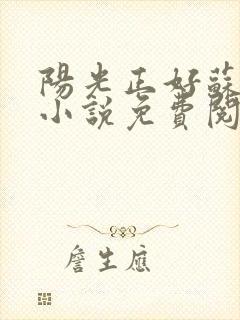 陽光正好蘇
小說免費閱
詹生應